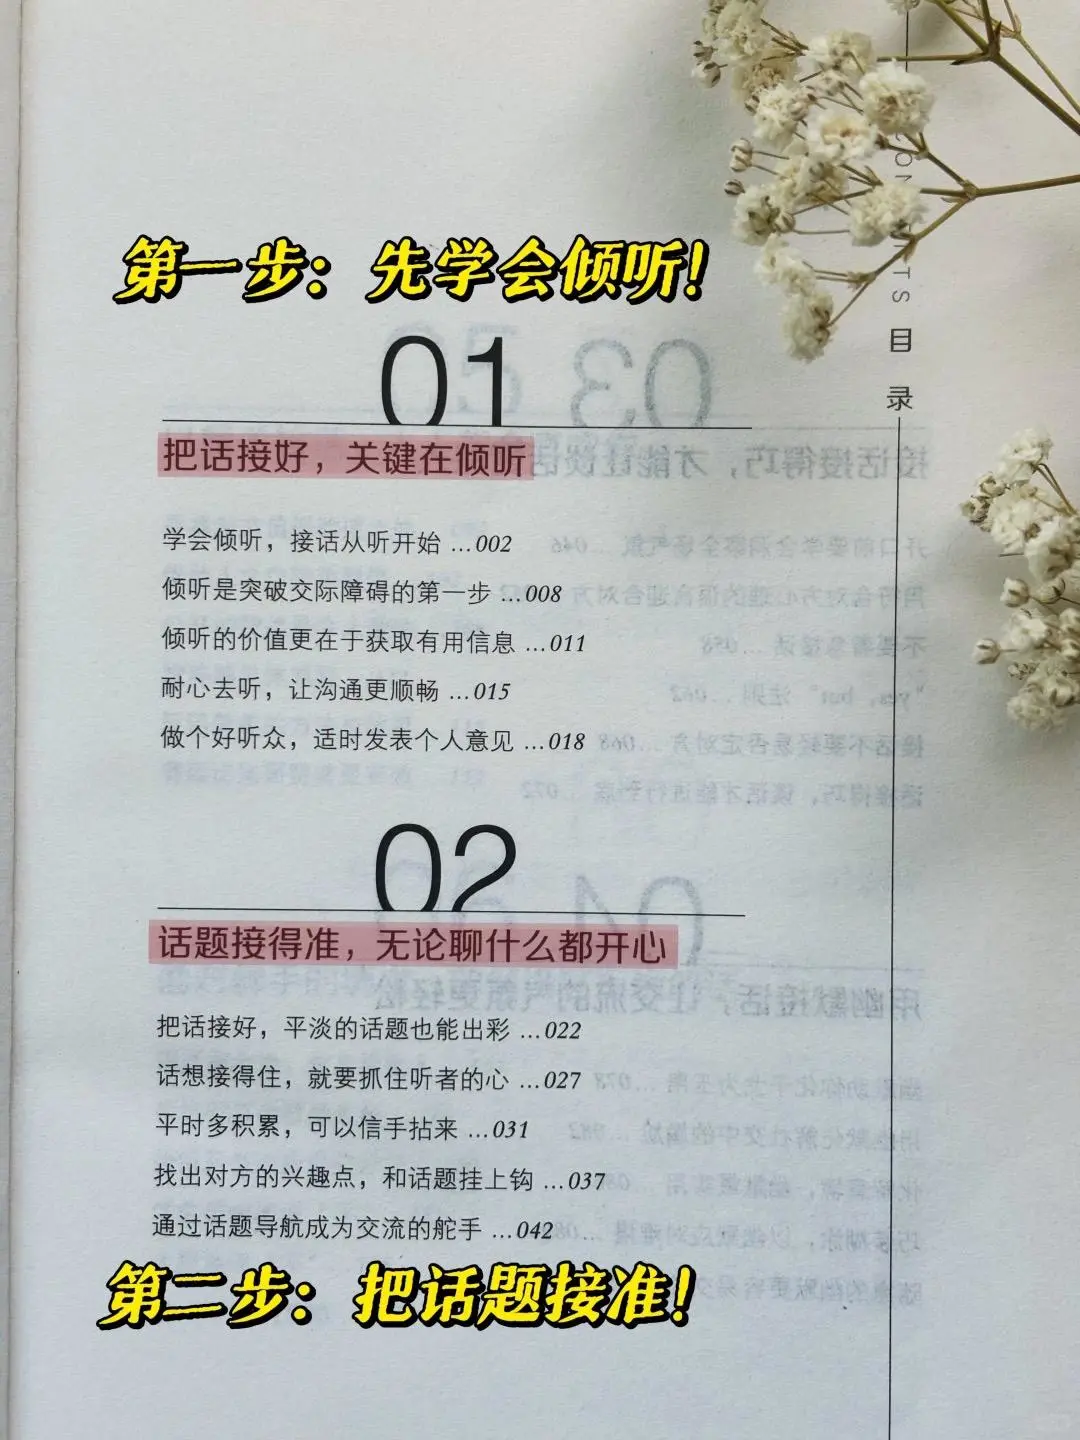 第一步：先学会倾听！
CON TS
目录
01
把话接好，关键在倾听
学会倾听，接话从听开始 ...002
倾听是突破交际障碍的第一步 ...008
倾听的价值更在于获取有用信息 ...011
耐心去听，让沟通更顺畅 ...015
做个好听众，适时发表个人意见 ...018
02
话题接得准，无论聊什么都开心
把话接好，平淡的话题也能出彩 ...022
话想接得住，就要抓住听者的心 ...027
平时多积累，可以信手拈来 ...031
找出对方的兴趣点，和话题挂上钩 ...037
通过话题导航成为交流的舵手 ...042
第二步：把话题接准！